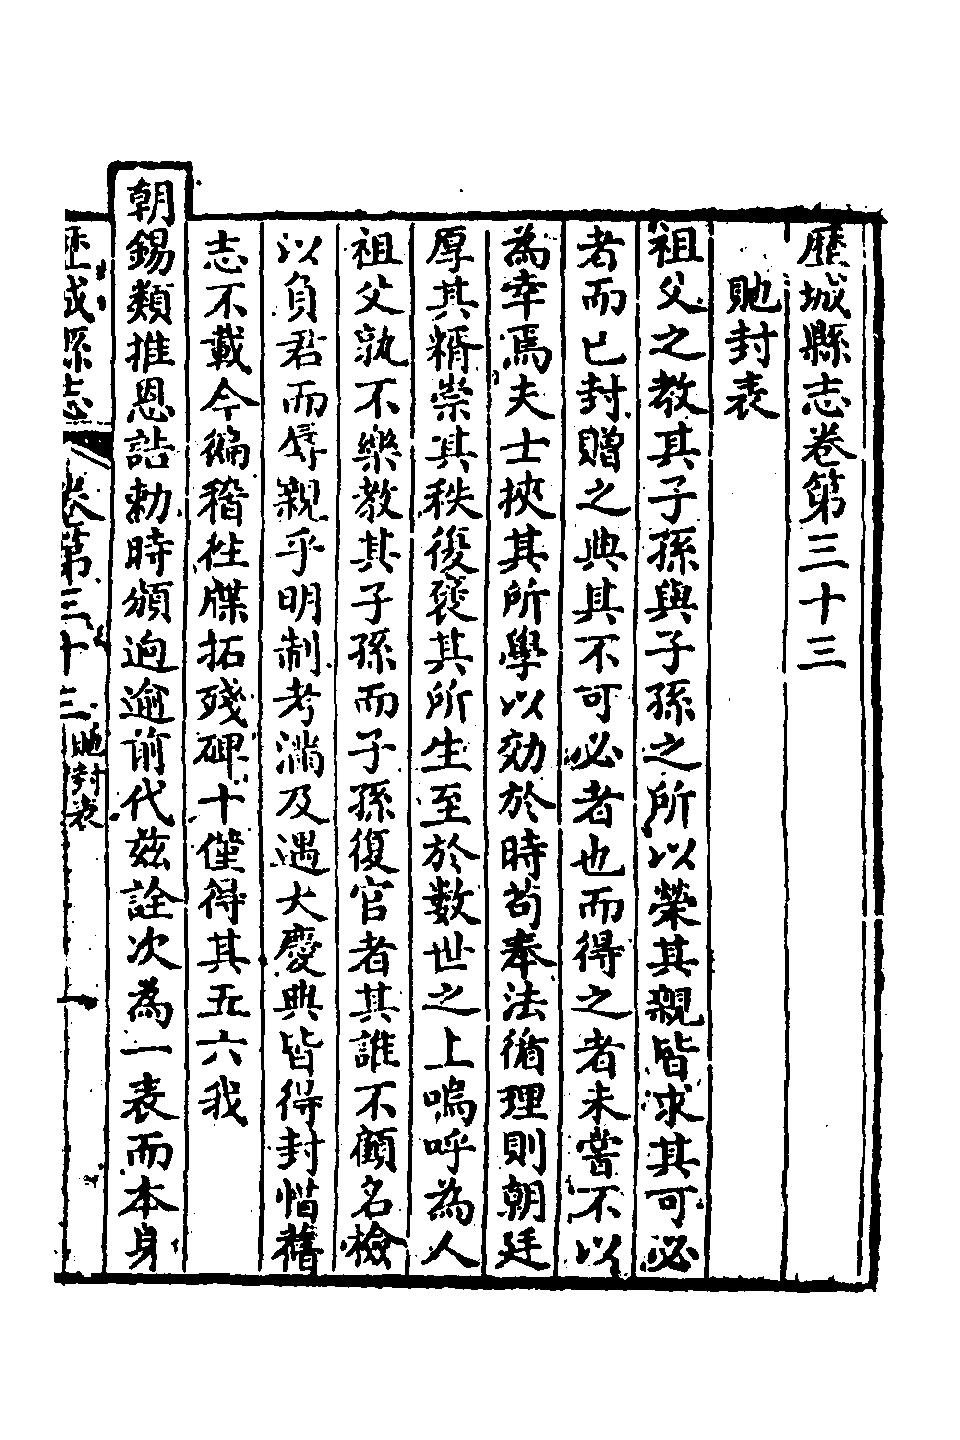 歷城縣志卷第三十三
貤封表
祖父之教其子孫與子孫之所以榮其親皆求其可必
者而已封贈之典其不可必者也而得之者未嘗不以
為幸焉夫士挾其所學以効於時苟奉法循理則朝廷
厚其糈崇其秩復褒其所生至於數世之上嗚呼為人
祖父孰不樂教其子孫而子孫復官者其誰不顧名檢
以負君而辱親乎明制考滿及遇大慶典皆得封惜舊
志不載今徧稽牲牒拓殘碑十僅得其五六我
朝錫類推恩誥勅時頒逈逾前代茲詮次為一表而本身
歷城縣志 卷第三十三 貤封表 一